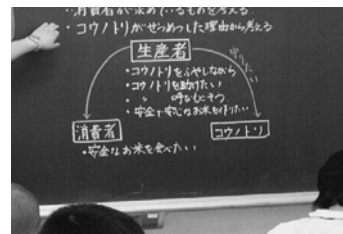 ・消費者が求めているものを考える
・コウノトリがぜつめつした理由から考える
生産者
守りたい
・コウノトリをふやしながら
・コウノトリを助けたい
・〃
・安全で安心なお米を作りたい
消費者
コウノトリ
・安全なお米を食べたい